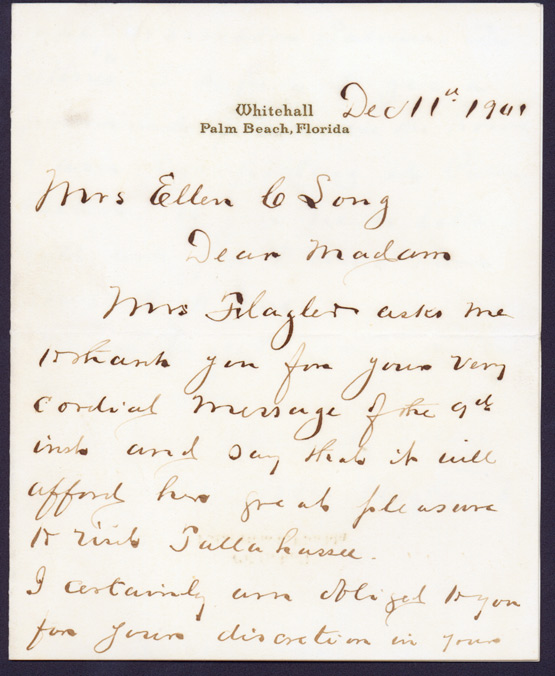 Whitehall
Palm Beach, Florida
Dec 11th 1901
Mrs Ellen C Long
Dear Madam
Mrs Flagler asks me
to thank you for your very
cordial message of the 9th
inst and say that it will
afford her great pleasure
to visit Tallahassee.
I certainly am obliged to you
for your discretion in your